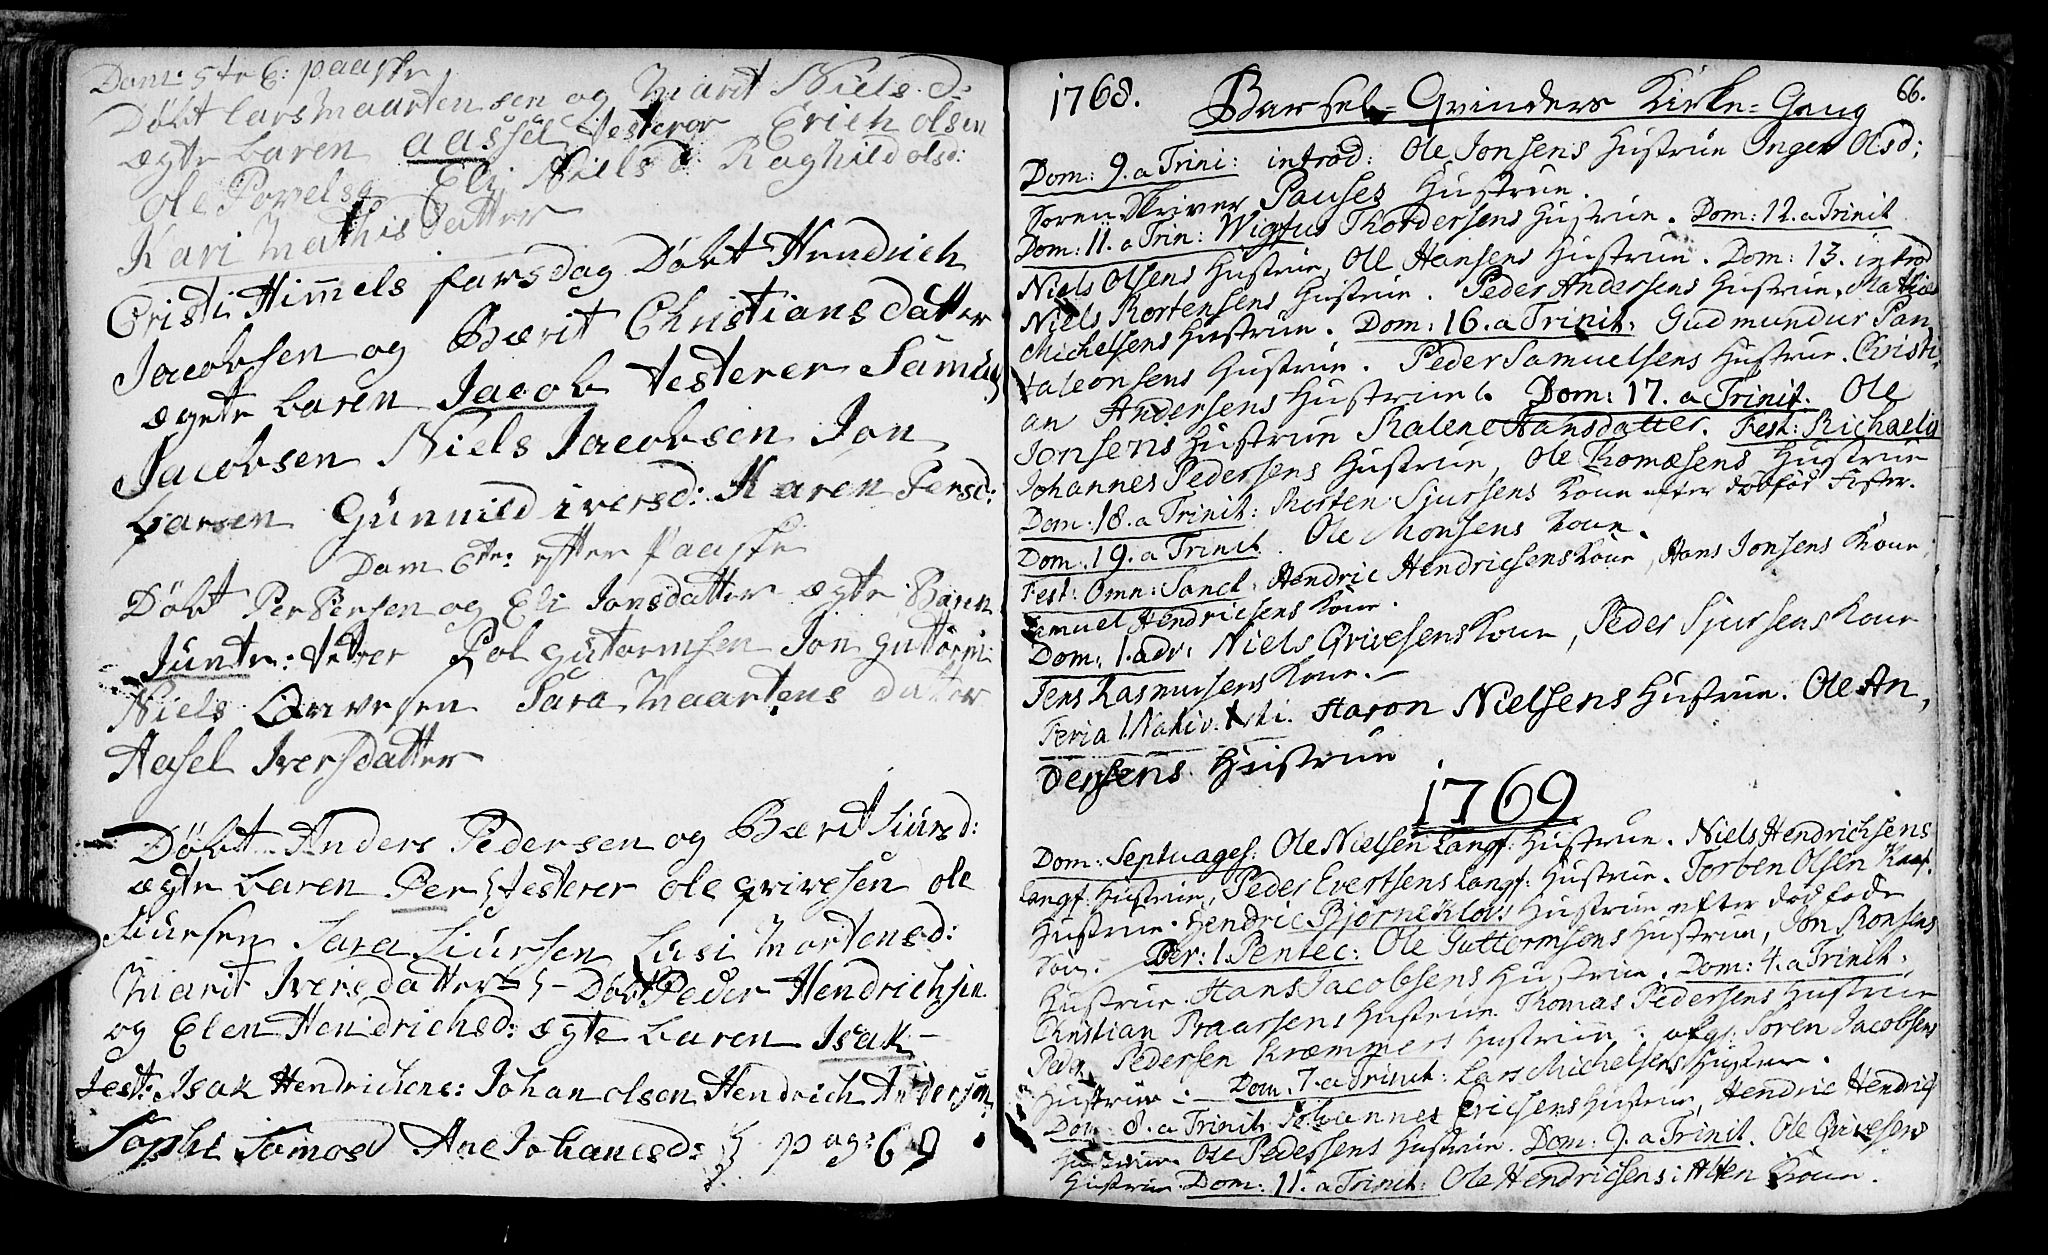 Dom: 5te E: paaske
Døbt Lars Maartensen og Marit Niels d:
ægte baren aassel testerer Erich olsen
Ole Povels. Eli Niels d Raghild olsd:
Kari Mathis datter
Cristi Himmels farsdag Døbt Hendrich
Jacobsen og Bærit Christiansdatter
ægte baren Jacob testerer Samuel
Jacobsen Niels Jacobsen Jon
Larsen Gunnild iversd: Karen Persd:
Dom 6te: efter Paaske
Døbt Per Persen og Eli Jonsdatter ægte Baren
Junte: tester Pol Gutormsen Jon Guttorm:
Niels Qvivesen Sara Maartens datter
Aasel Iversdatter
Døbt Anders Pedersen og Bærit Siursd:
ægte baren Per testerer ole qvivesen ole
Siursen Sara Siursen Lusi Mortensd:
Marit Iversdatter – Døbt Peder Hendrichsen
og Elen Hendrichsd: ægte baren Isak –
Test: Isak Hendrichsens: Johan olsen Hendrich Andersen
Sophi Tomasd Ane Johanesd: pag: 69
1768. Barsel-Qvinders Kirke-Gang 66.
Dom: 9. a Trini: introd: Ole Jonsens Hustrue Inger Olsd:
Soren Skriver Pauses Hustrue.
Dom: 11. a Trin: Wigfus Thordersens Hustrue. Dom: 12. a Trinit
Niels Olsens Hustrue, Ole Hansens Hustrue. Dom: 13. introd
Niels Mortensens Hustrue. Peder Andersens Hustrue, Mathias
Michelsens Hustrue. Dom: 16. a Trinit: Gudmundur Pan,
taleonsens Hustrue. Peder Samuelsens Hustrue. Christi,
an Andersens Hustrue. Dom: 17. a Trinit. Ole
Jonsens Hustrue Malene Hansdatter. Fest: Michaelis
Johannes Pedersens Hustrue, Ole Thomæsens Hustrue
Dom: 18. a Trinit: Morten Sjursens Kone efter dødfød Foster.
Dom: 19. a Trinit. Ole Monsens Kone.
Fest: Omn: Sanct: Hendric Hendricsens Kone, Hans Jonsens Kone,
Samuel Hendricsens Kone.
Dom: 1. adv: Niels Qvivesens Kone, Peder Sjursens Kone
Jens Rasmussens Kone. –
Feria 1 Nativ: Xsti. Aaron Nielsens Hustrue. Ole An,
dersens Hustrue
1769
Dom: Septuages: Ole Nielsen Langf: Hustrue. Niels Hendrichsens
Langf: Hustrue, Peder Evertsens Langf: Hustrue. Torben Olsen Kaaf.
Hustrue. Hendric Bjørneklo's Hustrue efter dødfødde
Søn. Fer: 1. Pentec: Ole Guttormsens Hustrue, Jon Monsens
Hustrue. Hans Jacobsens Hustrue. Dom: 4. a Trinit:
Christian Praarsens Hustrue. Thomas Pedersens Hustrue
Peder Pedersen Kræmmers Hustrue: afg. Soren Jacobsens
Hustrue: – Dom. 7. a Trinit: Lars Michelsens Hustrue.
Dom: 8. a Trinit. Johannes Ericsens Hustrue, Hendric Hendrics
Hustrue. Ole Pedersens Hustrue. Dom: 9. a Trinit. Ole Qvivesens
Hustrue. Dom: 11. a Trinit: Ole Hendricsens i Alten Kone.